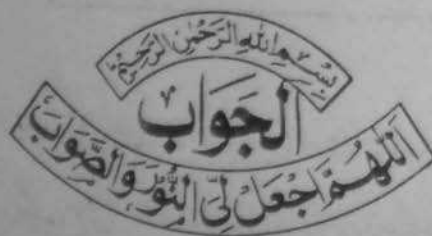 بِسْمِ اللهِ الرَّحْمٰنِ الرَّحِيْمِ
اَلجَوَاب
اَللّٰهُمَّ اجْعَلْ لِيَ النُّوْرَ وَالصَّوَابَ